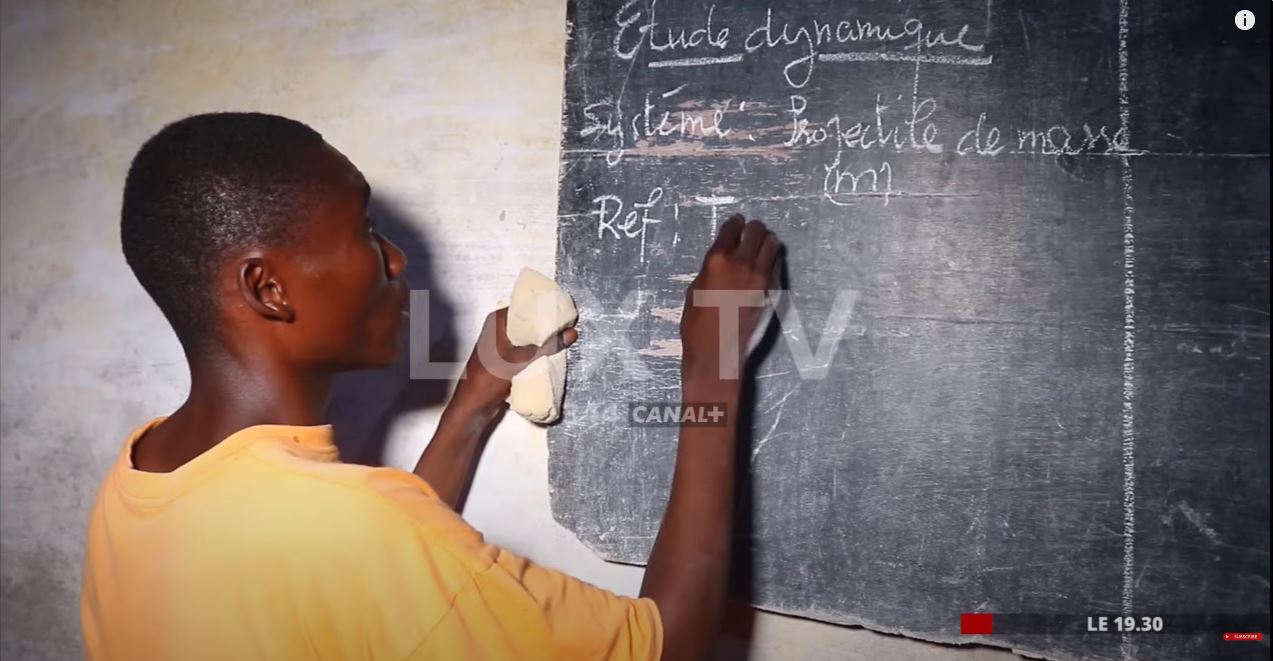 Etude dynamique
Système : Projectile de masse
(m)
Ref : T
LUX TV
CANAL+
LE 19.30
SUBSCRIBE
i